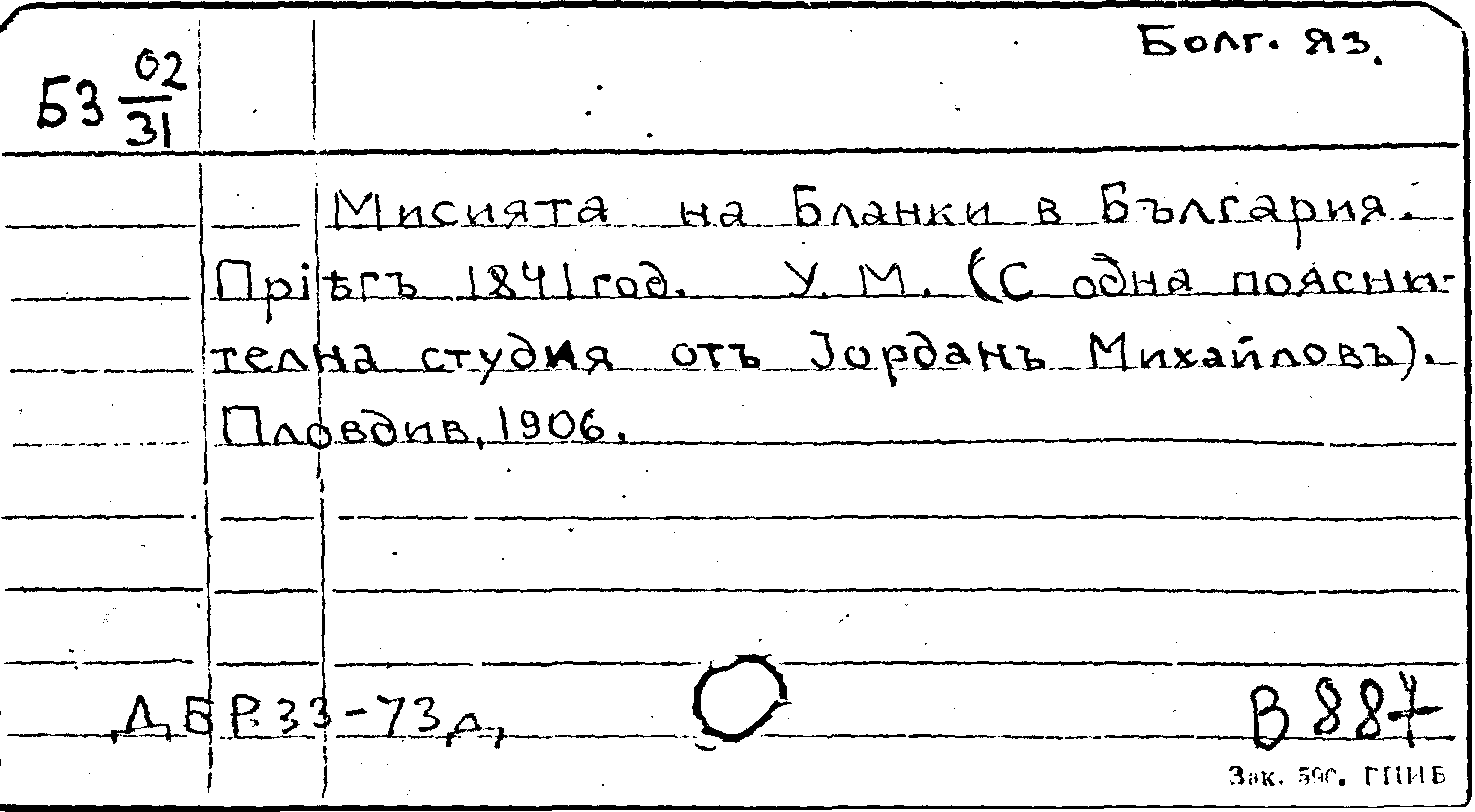 Болг. яз.
Б3 02/31
Мисията на Бланки в България.
Прiѣгъ 1841 год. У. М. (С одна поясни-
телна студия отъ Jорданъ Михайловъ).
Пловдив, 1906.
ДБ Р.33-73д,
В 887
Зак. 590. ГПИБ